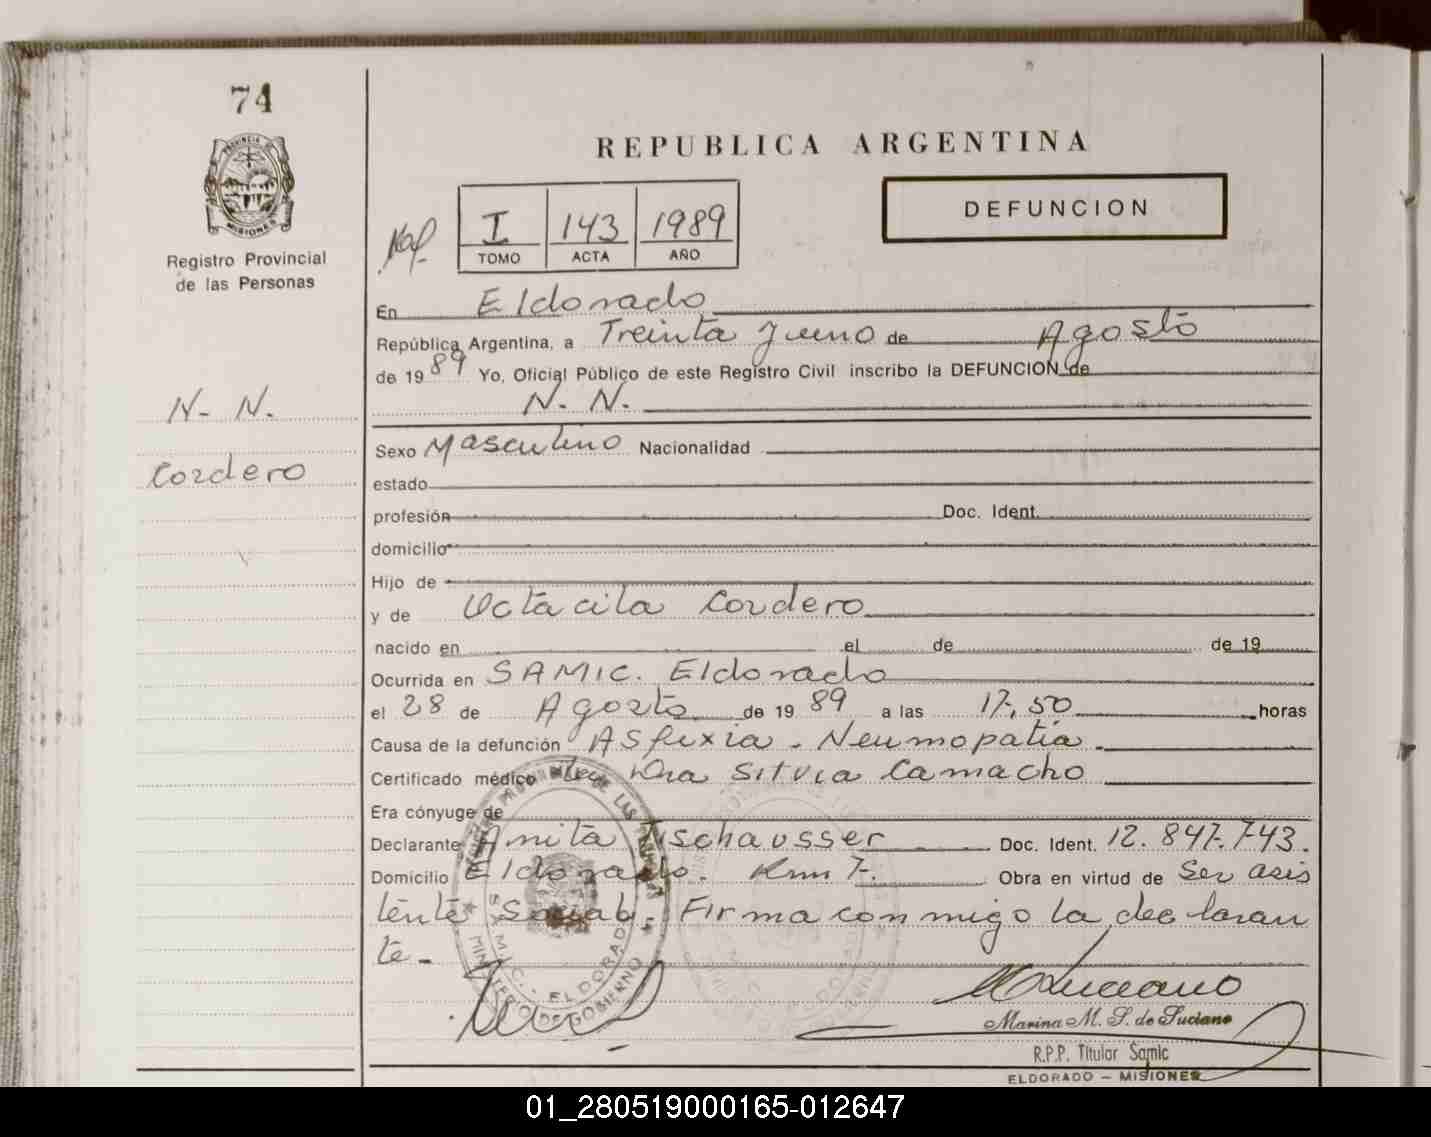 74
PROVINCIA DE
MISIONES
Registro Provincial
de las Personas
N- N.
Cordero
REPUBLICA ARGENTINA
I 143 1989
TOMO ACTA AÑO
DEFUNCION
En Eldorado
República Argentina, a Treinta y uno de Agosto
de 19 89 Yo, Oficial Público de este Registro Civil inscribo la DEFUNCION de
N. N.
Sexo Masculino Nacionalidad
estado
profesión Doc. Ident.
domicilio
Hijo de
y de Octacila Cordero
nacido en el de de 19
Ocurrida en SAMIC. Eldorado
el 28 de Agosto de 19 89 a las 17,50 horas
Causa de la defunción Asfixia - Neumopatia
Certificado médico Dra Silvia Camacho
Era cónyuge de
Declarante Anita Tschausser Doc. Ident. 12.847.743.
Domicilio Eldorado. Km 7. Obra en virtud de Ser asis
tente Social. Firma conmigo la declaran
te -
S.A.M.I.C. - ELDORADO
MINISTERIO DE GOBIERNO
M Luciano
Marina M. S. de Luciano
R.P.P. Titular Samic
ELDORADO - MISIONES
01_280519000165-012647